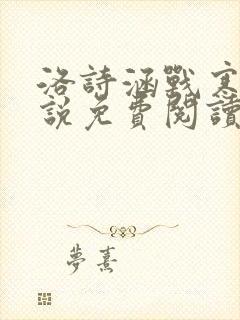 洛詩涵戰寒
說免費閱讀
夢熹